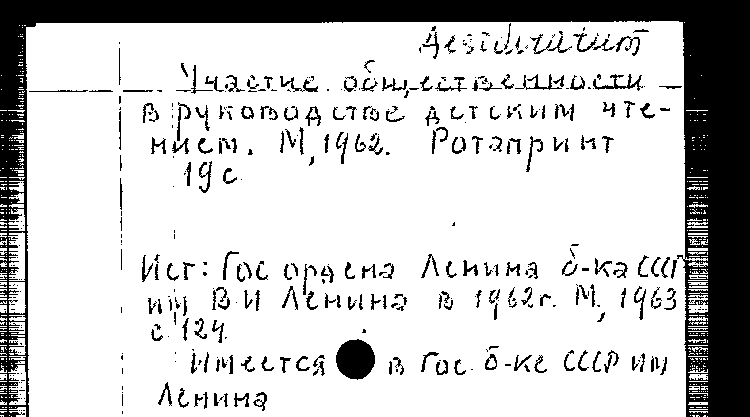 Desideratum
Участие общественности
в руководстве детским чте-
нием. М, 1962. Ротапринт
19 с
Ист: Гос ордена Ленина б-ка СССР
им В И Ленина в 1962г. М, 1963
с 124
Имеется в Гос. б-ке СССР им
Ленина